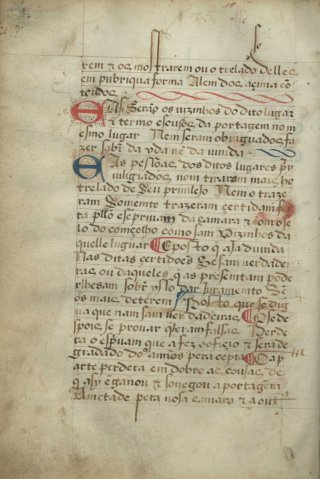 rem & os mostrarem ou o trelado delles
em pubriqua forma Alem dos açima cõ
teudos
E As Serão os vizinhos do dito lugar
& termo escusos da portagem no m
esmo lugar Nem seram obriguados fa
zer sobr̃ da vda nẽ da vinda
E As pesoas dos ditos lugares p̃ui
liligiados nem tiraram mais ho
trelado de Seu priuilejo Nem o traze
ram Somente trazeram certidam fe
ta pllo espriuam da camara & com o se
lo do comçelho como sam Vizinhos da
quelle luguar E posto q aja duuida
nas ditas certidoẽs Se sam verdadei
ras ou daqueles q as presemtam pode
rlhesam sobr̃ isto dar Juramento Sẽ
os mais deterem Posto que se digua
va que nam sam verdadeiras E se de
spois se prouar q eram falsas Perde
ra o espriuam que a fez o ofiçio & sera de
gradado dous annos pera cepta E a p
arte perdera em dobro as cousas de
q asy emganou & sonegou a portagem
Ametade pera nosa camara & a out